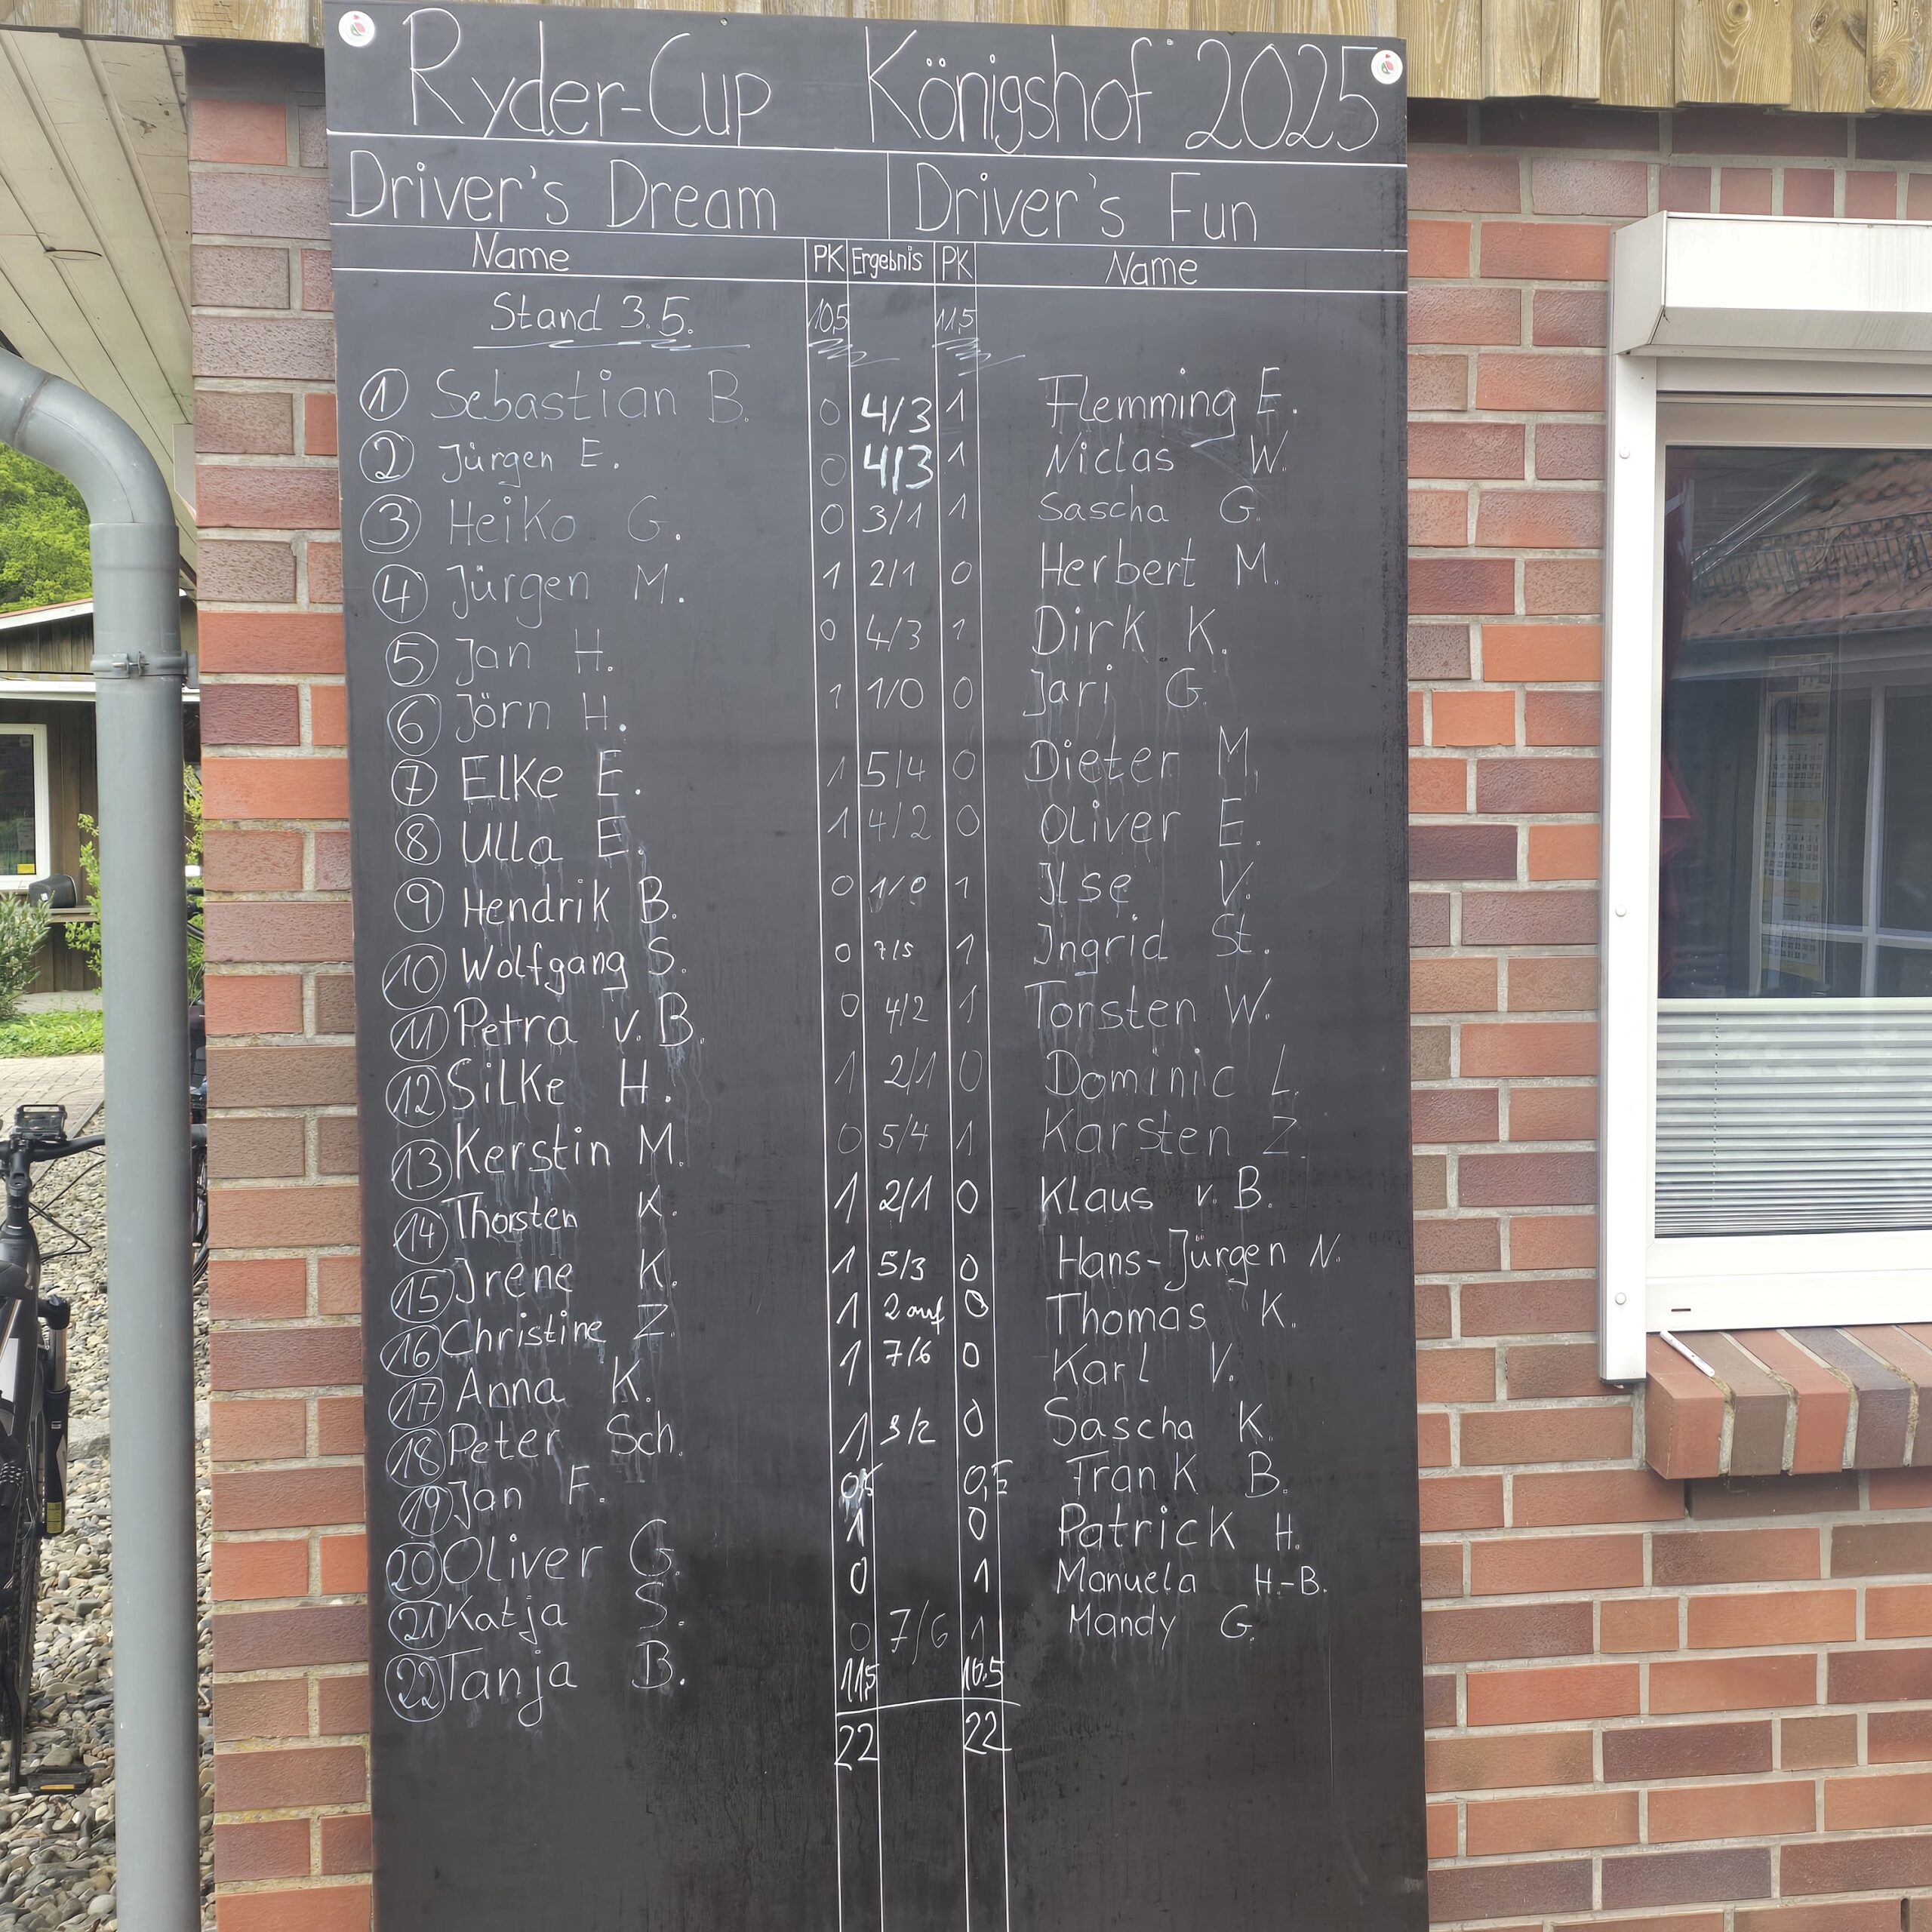 Ryder-Cup Königshof 2025
Driver's Dream Driver's Fun
Name PK Ergebnis PK Name
Stand 3.5. 10,5 11,5
1 Sebastian B. 0 4/3 1 Flemming E.
2 Jürgen E. 0 4/3 1 Niclas W.
3 Heiko G. 0 3/1 1 Sascha G.
4 Jürgen M. 1 2/1 0 Herbert M.
5 Jan H. 0 4/3 1 Dirk K.
6 Jörn H. 1 1/0 0 Jari G.
7 Elke E. 1 5/4 0 Dieter M.
8 Ulla E. 1 4/2 0 Oliver E.
9 Hendrik B. 0 1/0 1 Ilse V.
10 Wolfgang S. 0 7/5 1 Ingrid St.
11 Petra v. B. 0 4/2 1 Torsten W.
12 Silke H. 1 2/1 0 Dominic L.
13 Kerstin M. 0 5/4 1 Karsten Z.
14 Thorsten K. 1 2/1 0 Klaus v. B.
15 Irene K. 1 5/3 0 Hans-Jürgen N.
16 Christine Z. 1 2 auf 0 Thomas K.
17 Anna K. 1 7/6 0 Karl V.
18 Peter Sch. 1 3/2 0 Sascha K.
19 Jan F. 0,5 0,5 Frank B.
20 Oliver G. 1 0 Patrick H.
21 Katja S. 0 1 Manuela H.-B.
22 Tanja B. 0 7/6 1 Mandy G.
11,5 10.5
22 22